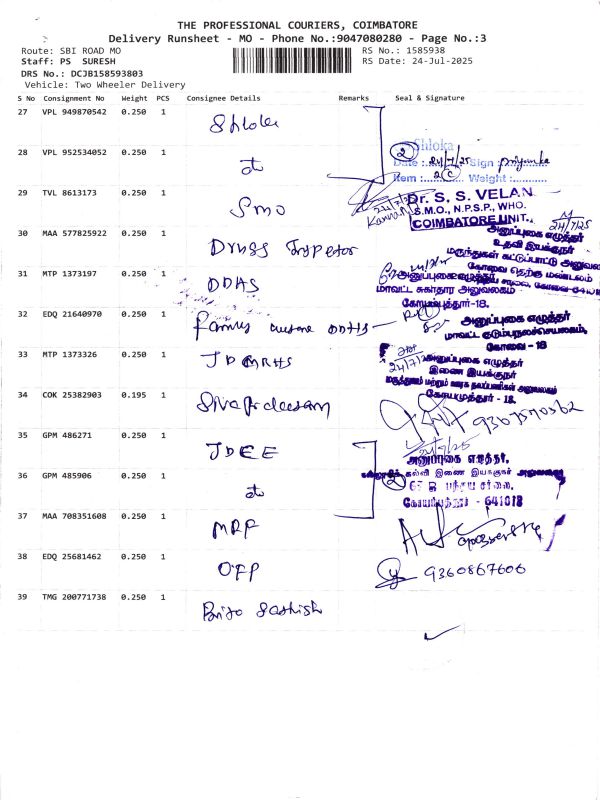 THE PROFESSIONAL COURIERS, COIMBATORE
Delivery Runsheet - MO - Phone No.:9047080280 - Page No.:3
Route: SBI ROAD MO RS No.: 1585938
Staff: PS SURESH RS Date: 24-Jul-2025
DRS No.: DCJB158593803
Vehicle: Two Wheeler Delivery
S No Consignment No Weight PCS Consignee Details Remarks Seal & Signature
27 VPL 949870542 0.250 1 Shloka
28 VPL 952534052 0.250 1 do
Shloka
Date : 24/7/25 Sign : Priyanka
Item : 2 Weight :
29 TVL 8613173 0.250 1 SMO
Dr. S. S. VELAN
S.M.O., N.P.S.P., WHO.
COIMBATORE UNIT.
24/7/25
30 MAA 577825922 0.250 1 Drugs Inspector
அனுப்புகை எழுத்தர்
உதவி இயக்குநர்
மருந்துகள் கட்டுப்பாட்டு அலுவலகம்
கோவை தெற்கு மண்டலம்
31 MTP 1373197 0.250 1 DDHS
அனுப்புகை எழுத்தர்
மாவட்ட சுகாதார அலுவலகம்
கோயம்புத்தூர்-18.
32 EDQ 21640970 0.250 1 Family welfare DDHS
அனுப்புகை எழுத்தர்
மாவட்ட குடும்பநலச்செயலகம்,
கோவை - 18
33 MTP 1373326 0.250 1 JDMRHS
அனுப்புகை எழுத்தர்
இணை இயக்குநர்
மருத்துவம் மற்றும் ஊரக நலப்பணிகள் அலுவலகம்
கோயமுத்தூர் - 18.
34 COK 25382903 0.195 1 Sivapradeesam
9367570562
35 GPM 486271 0.250 1 JDEE
24/7/25
அனுப்புகை எழுத்தர்,
36 GPM 485906 0.250 1 do
கல்வி இணை இயக்குநர் அலுவலகம்
கோயம்புத்தூர் - 641018
37 MAA 708351608 0.250 1 MRF
38 EDQ 25681462 0.250 1 OFP
9360867606
39 TMG 200771738 0.250 1 Brito Sathish